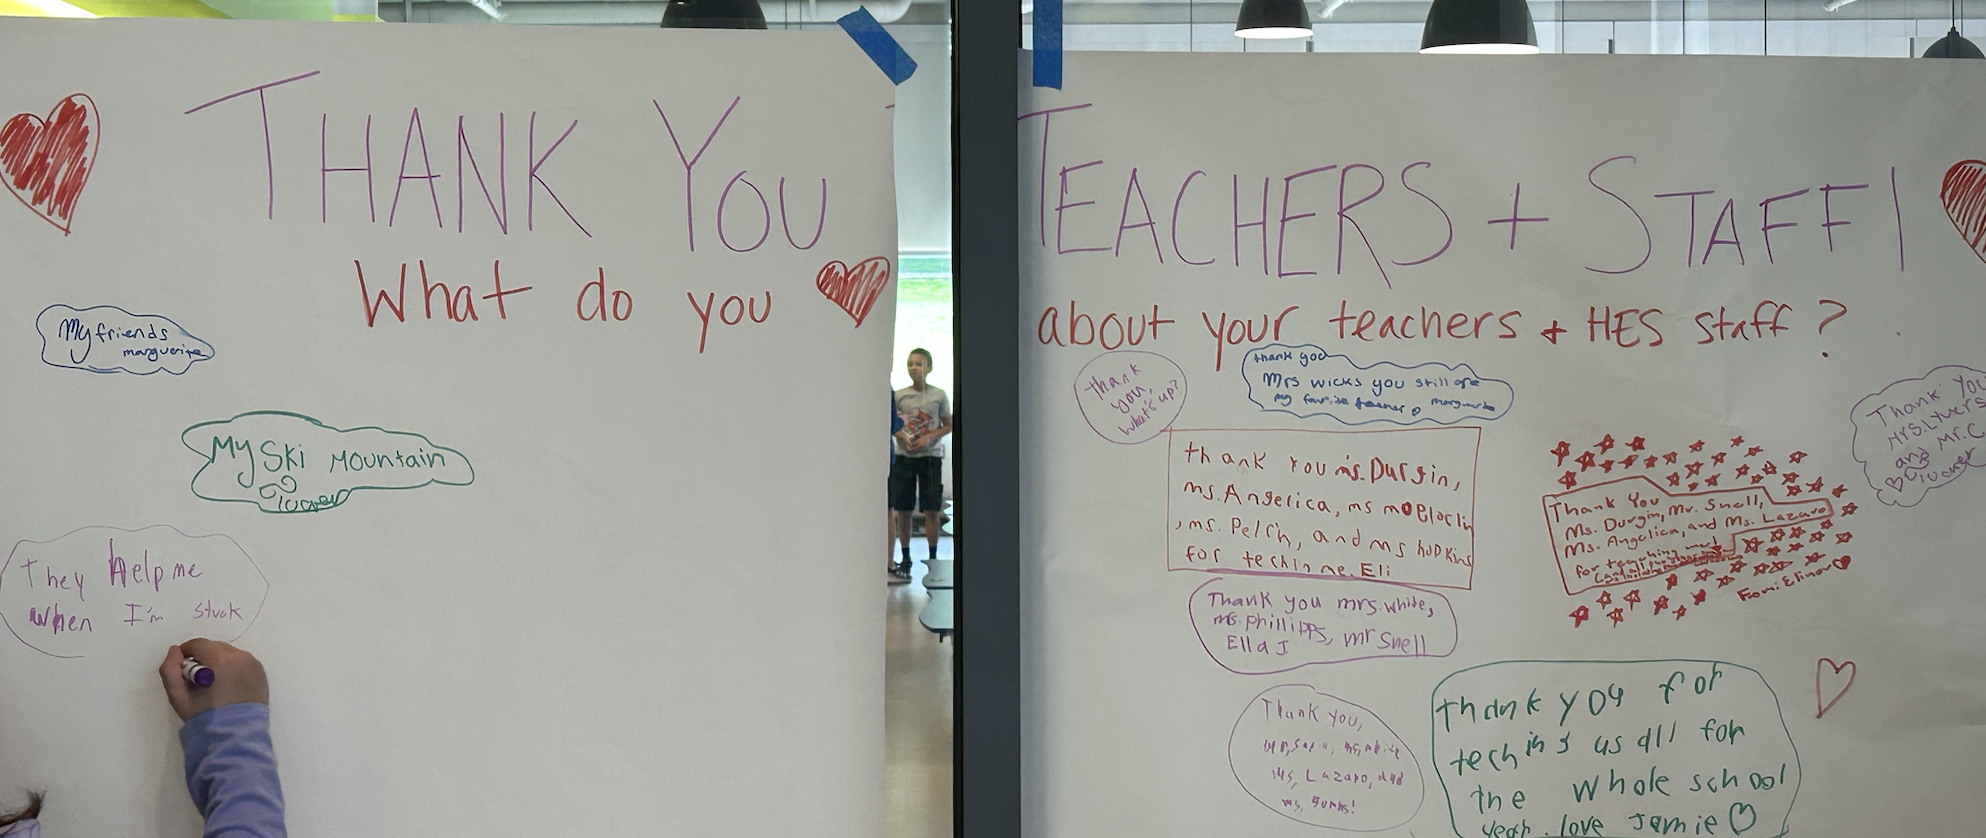 THANK YOU
What do you
My friends
marguerite
My Ski Mountain
Tucker
They help me
when I'm stuck
TEACHERS + STAFF!
about your teachers + HES staff?
Thank
you,
what's up?
thank you
Mrs wicks you still are
my favorite teacher marguerite
Thank You
Mrs. Lyvers
and Mr. C
Tucker
thank you ms. Durgin,
ms. Angelica, ms
, ms. Pelch, and ms hopkins
for techin me. Eli
Thank You
Ms. Durgin, Mr. Snell,
Ms. Angelica, and Ms. Lazaro
for teaching me!
From: Elinor
Thank you mrs. white,
ms. phillipps, mr Snell
Ella J
Thank you,
Ms. Lazaro, and
ms,
thank you for
teching us all for
the whole school
yeah. love Jamie